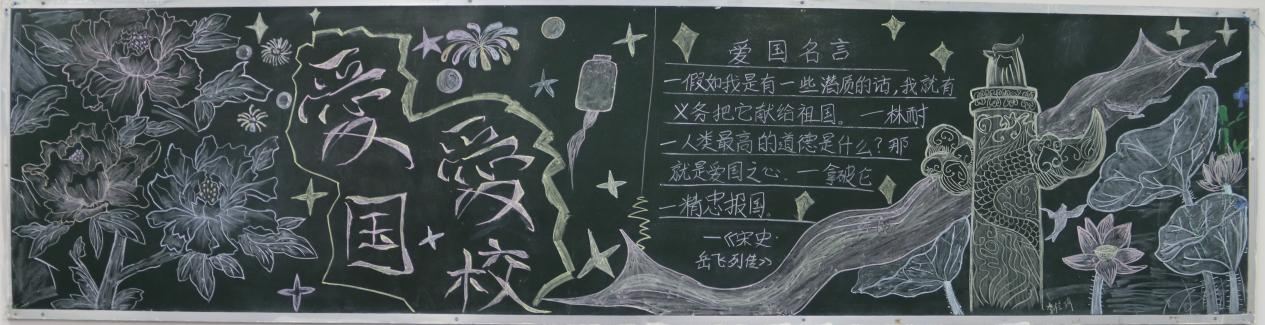 爱国
爱校
爱国名言
一假如我是有一些潜质的话,我就有
义务把它献给祖国。—林耐
一人类最高的道德是什么?那
就是爱国之心。—拿破仑
一精忠报国。
—《宋史·
岳飞列传》